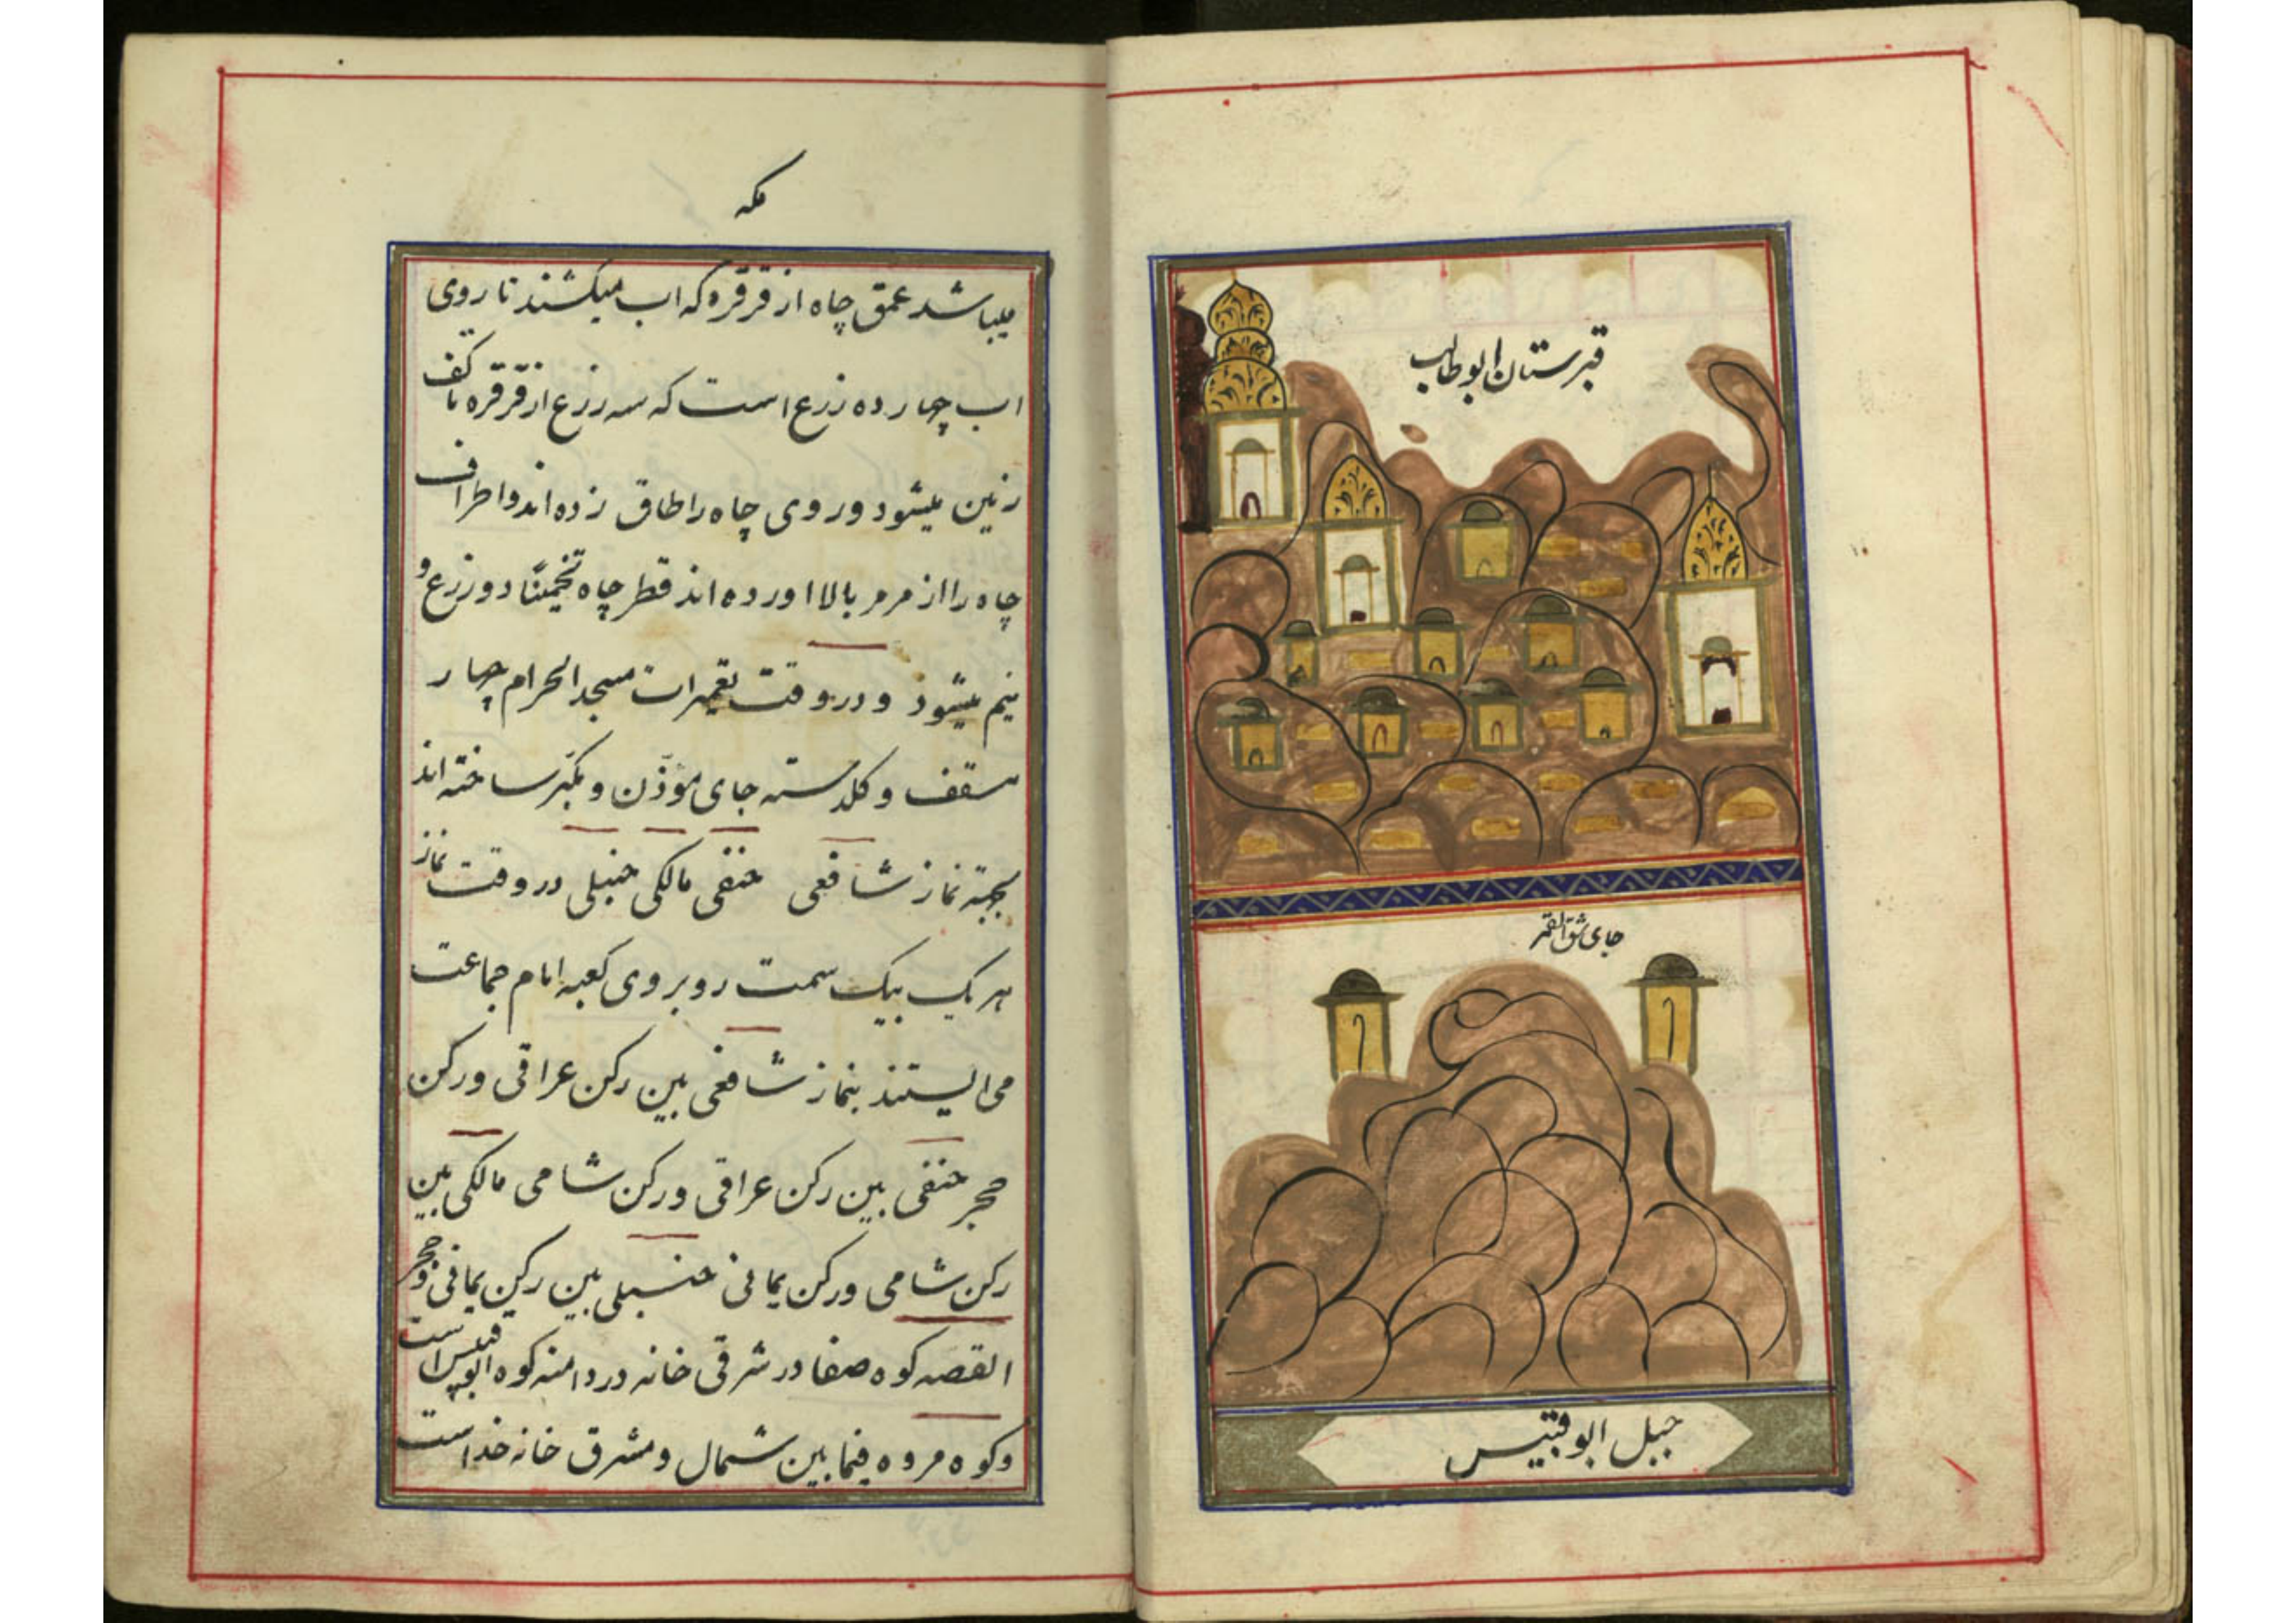 قبرستان ابوطالب
جای شق القمر
جبل ابوقبیس
مکه
میباشد عمق چاه از قرقره که اب میکشند تا روی
اب چهارده زرع است که سه زرع از قرقره تا کف
زمین میشود و روی چاه را طاق زده اند و اطراف
چاه را از مرمر بالا اورده اند قطر چاه تخمیناً دو زرع و
نیم میشود و در وقت تعمیرات مسجد الحرام چهار
سقف و کلدسته جای مؤذن و مکبّر ساخته اند
بجهته نماز شافعی حنفی مالکی حنبلی در وقت نماز
هر یک بیک سمت روبروی کعبه امام جماعت
می ایستند بنماز شافعی بین رکن عراقی و رکن
حجر حنفی بین رکن عراقی و رکن شامی مالکی بین
رکن شامی و رکن یمانی حنبلی بین رکن یمانی و حجر
القصه کوه صفا در شرقی خانه در دامنه کوه ابوقبیس است
و کوه مروه فیما بین شمال و مشرق خانه خداست